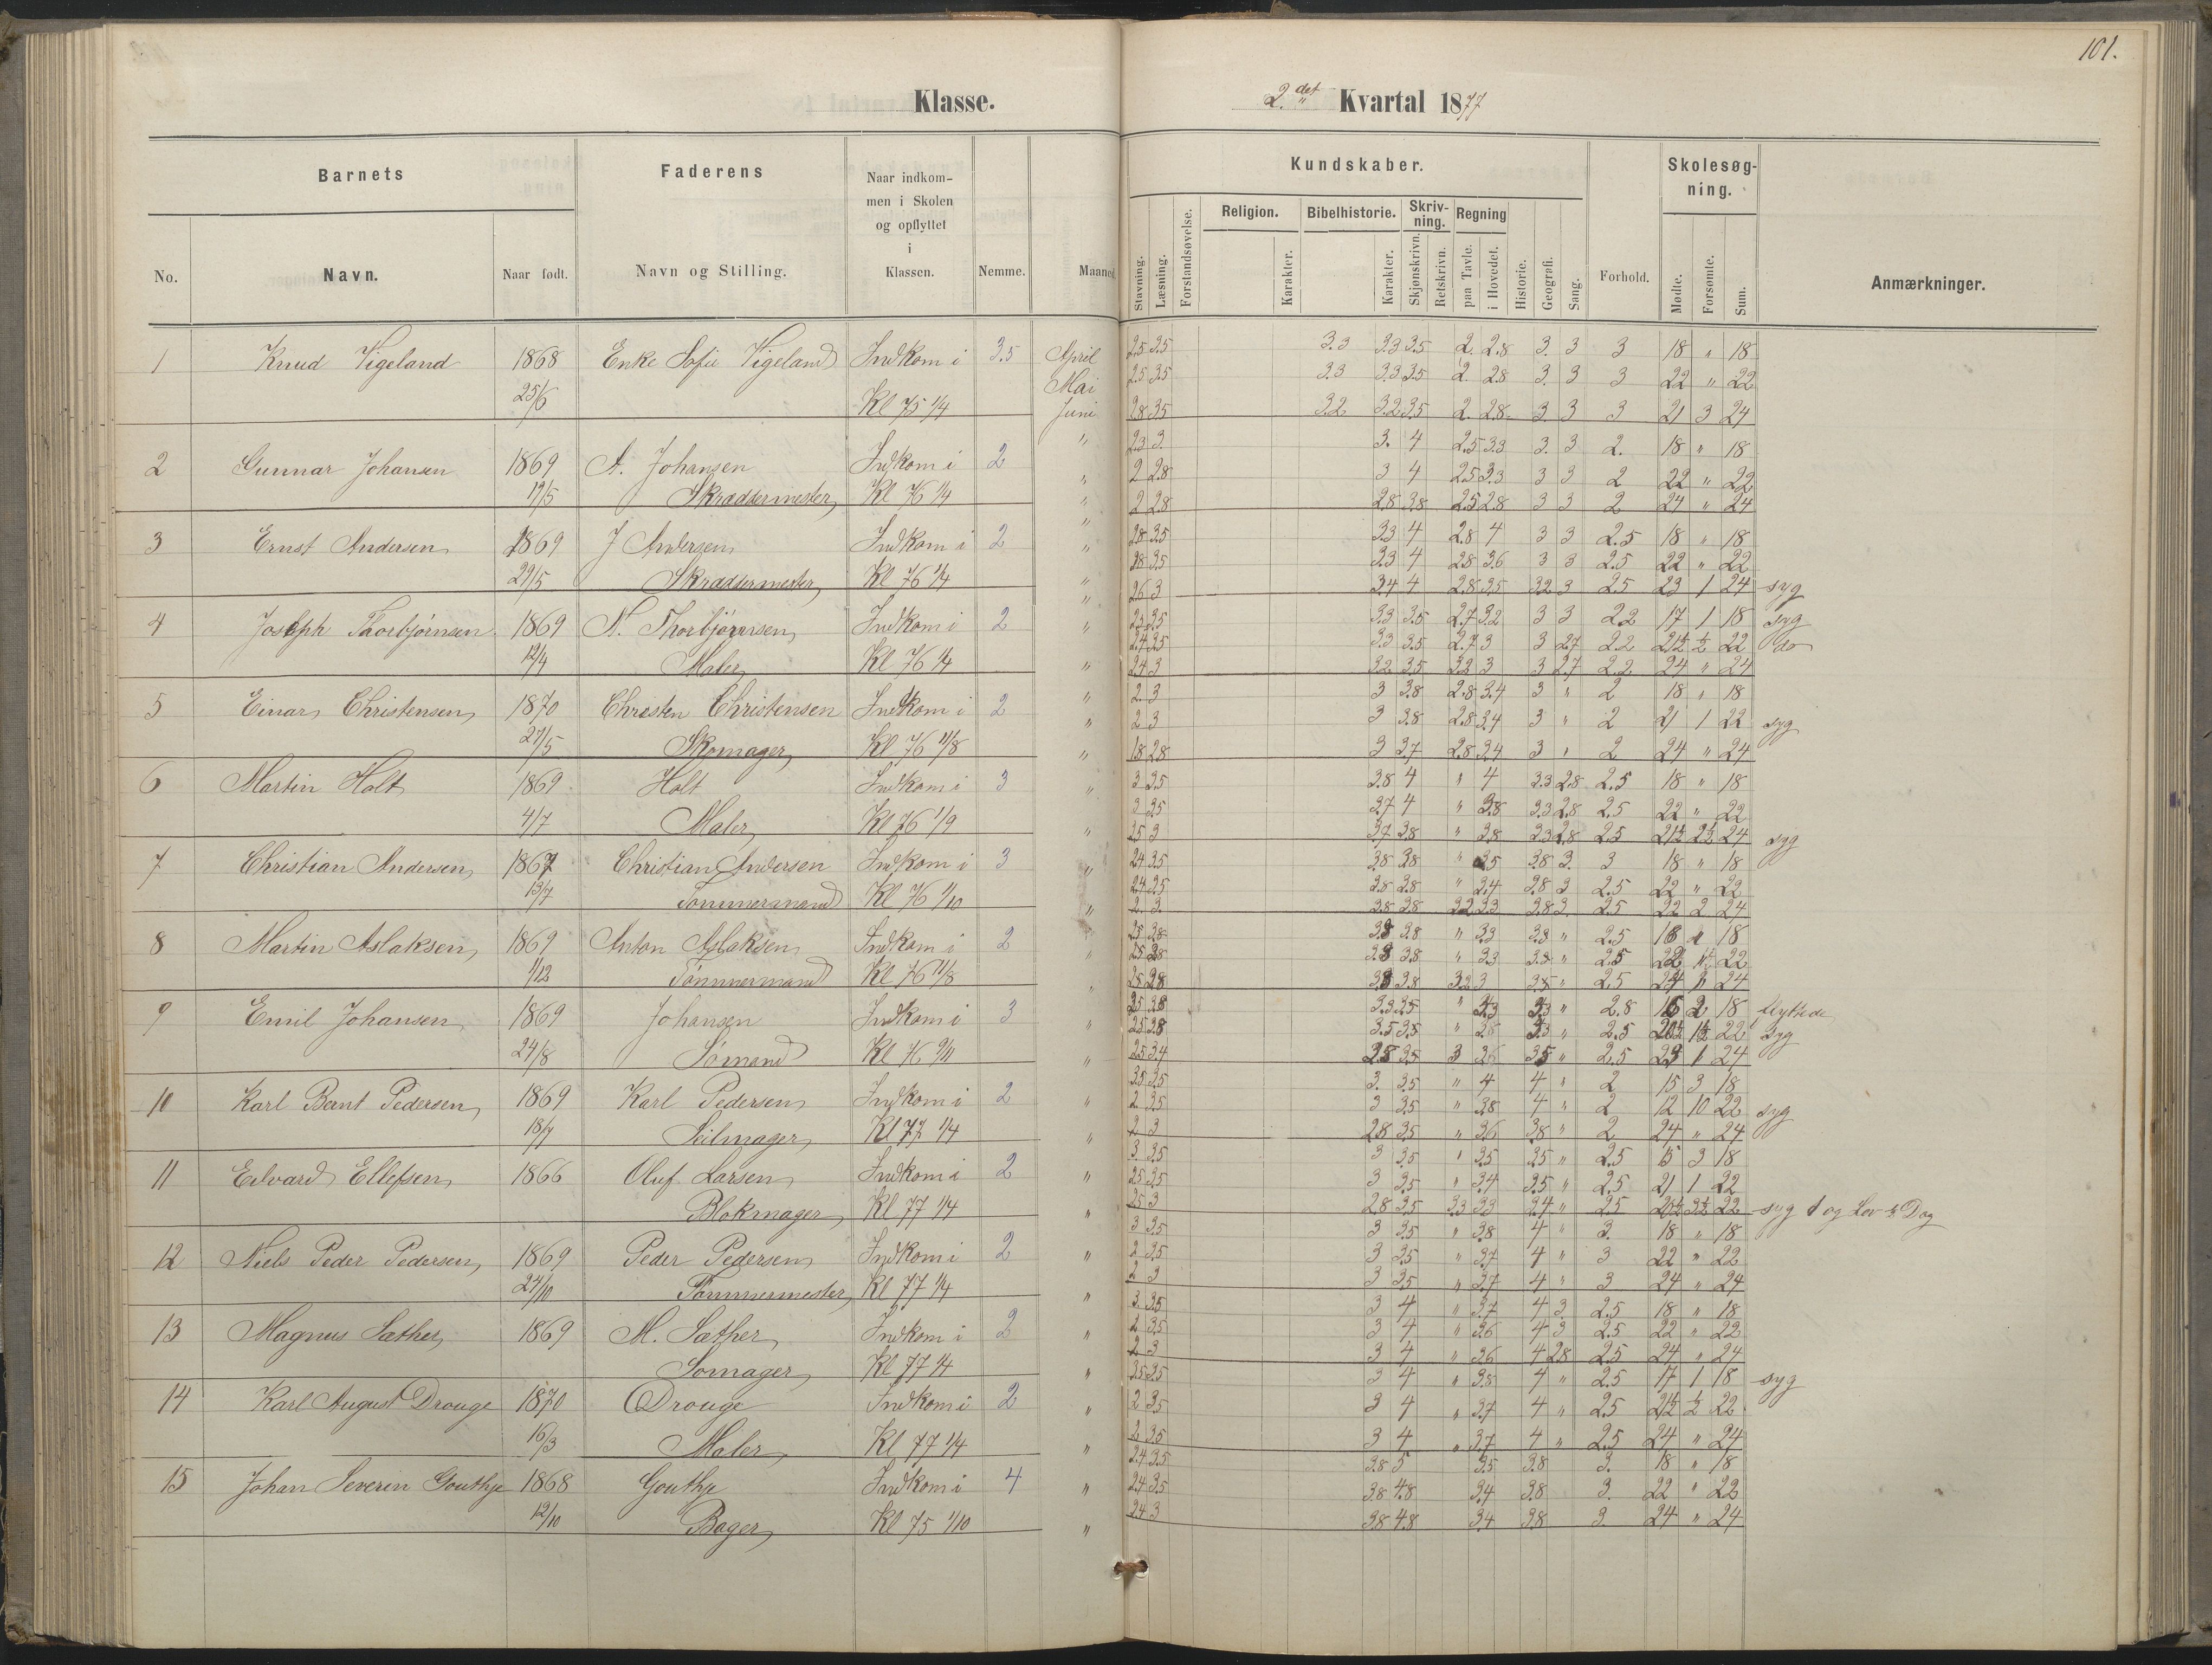 101.
Klasse.
2.det Kvartal 1877
Barnets
Faderens
Naar indkom-
men i Skolen
og opflyttet
i
Klassen.
No.
Navn.
Naar født.
Navn og Stilling.
Nemme.
Maaned
Kundskaber.
Skolesøg-
ning.
Stavning.
Læsning.
Forstandsøvelse.
Religion.
Karakter.
Bibelhistorie.
Karakter.
Skriv-
ning.
Skjønskrivn.
Retskrivn.
Regning
paa Tavle.
i Hovedet.
Historie.
Geografi.
Sang.
Forhold.
Mødte.
Forsømte.
Sum.
Anmærkninger.
1 Knud Vigeland 1868 Enke Sofie Vigeland Indkom i 3.5 April 2.5 3.5 3.3 3.3 3.5 2. 2.8 3. 3 3 18 " 18
Mai 2.5 3.5 3.3 3.3 3.5 2. 2.8 3. 3 3 22 " 22
25/6 Kl 75 1/4 Juni 2.8 3.5 3.2 3.2 3.5 2. 2.8 3 3 3 21 3 24
" 2.3 3. 3. 4 2.5 3.3 3. 3 2. 18 " 18
2 Gunnar Johansen 1869 A. Johansen Indkom i 2 " 2 2.8 3 4 2.5 3.3 3 3 2 22 " 22
19/5 Skraddermester Kl 76 1/4 " 2 2.8 2.8 3.8 2.5 2.8 3 3 2 24 " 24
" 2.8 3.5 3.3 4 2.8 4 3 3 2.5 18 " 18
3 Ernst Andersen 1869 J Andersen Indkom i 2 " 2.8 3.5 3.3 4 2.8 3.6 3 3 2.5 22 " 22
29/5 Skraddermester Kl 76 1/4 " 2.6 3 3.4 4 2.8 3.5 3.2 3 2.5 23 1 24 syg
4 Joseph Thorbjørnsen 1869 N. Thorbjørnsen Indkom i 2 " 2.3 3.5 3.3 3.5 2.7 3.2 3 3 2.2 17 1 18 syg
2.4 3.5 3.3 3.5 2.7 3 3 2.7 2.2 21½ ½ 22 do
12/4 Maler Kl 76 1/4 " 2.4 3 3.2 3.5 3.2 3 3 2.7 2.2 24 " 24
" 2. 3 3 3.8 2.8 3.4 3 " 2 18 " 18
5 Einar Christensen 1870 Christen Christensen Indkom i 2 " 2 3 3 3.8 2.8 3.4 3 " 2 21 1 22 syg
27/5 Skomager Kl 76 11/8 " 1.8 2.8 3 3.7 2.8 3.4 3 " 2 24 " 24
6 Martin Holt 1869 Holt Indkom i 3 " 3 3.5 3.8 4 " 4 3.3 2.8 2.5 18 " 18
3 3.5 3.7 4 " 3.8 3.3 2.8 2.5 22 " 22
4/7 Maler Kl 76 1/9 " 2.5 3 3.7 3.8 " 3.8 3.3 2.8 2.5 21½ 2½ 24 syg
7 Christian Andersen 1867 Christian Andersen Indkom i 3 " 2.4 3.5 3.8 3.8 " 3.5 3.8 3. 3 18 " 18
2.4 3.5 3.8 3.8 " 3.4 3.8 3 2.5 22 " 22
13/7 Tømmermand Kl 76 1/10 " 2. 3. 3.8 3.8 3.2 3.3 3.8 3. 2.5 22 2 24
8 Martin Aslaksen 1869 Anton Aslaksen Indkom i 2 2.5 3.8 3.8 " 3.3 3.8 " 2.5 18 18
2.5 3.8 3.8 " 3.3 3.8 " 2.5 22 22
1/12 Tømmermand Kl 76 11/8 " 3.8 3.2 3 3.8 " 2.5 24 24
9 Emil Johansen 1869 Johansen Indkom i 3 " 2.5 3.8 3.3 3.5 " 3.3 " 2.8 16 2 18 flyttede
2.5 3.8 3.5 3.5 " 3.8 3.3 " 2.5 20½ 1½ 22 syg
24/8 Sømand Kl 76 9/11 " 2.5 3.4 2.8 3.5 3 3.6 3.5 " 2.5 23 1 24
3.5 3.5 3. 3.5 " 4 4 " 2 15 3 18
10 Karl Bernt Pedersen 1869 Karl Pedersen Indkom i 2 " 2 3.5 3 3.5 " 3.8 4 " 2 12 10 22 syg
18/7 Seilmager Kl 77 1/4 " 2 3 2.8 3.5 " 3.6 3.8 " 2 24 " 24
3. 3.5 3 3.5 " 3.5 3.5 " 2.5 15 3 18
11 Edvard Ellefsen 1866 Oluf Larsen Indkom i 2 " 2.5 3.5 3 3.5 " 3.4 3.5 " 2.5 21 1 22
Blokmager Kl 77 1/4 " 2.5 3 2.8 3.5 3.3 3.3 3.4 " 2.5 20½ 3½ syg 1 og Lov ½ Dag
3 3.5 3 3.5 " 3.8 4 " 3. 18 " 18
12 Niels Peder Pedersen 1869 Peder Pedersen Indkom i 2 " 2 3.5 3 3.5 " 3.7 4 " 3 22 " 22
24/10 Tømmermester Kl 77 1/4 " 2 3 3 3.5 " 3.7 4 " 3 24 " 24
3. 3.5 3 4 " 3.7 4 3 2.5 18 " 18
13 Magnus Sæther 1869 M. Sæther Indkom i 2 " 2 3.5 3 4 " 3.6 4 3 2.5 22 " 22
Somager Kl 77 1/4 " 2 3 3 4 " 3.6 4 2.8 2.5 24 " 24
3.5 3.5 3 4 " 3.8 4 " 2.5 17 1 18 syg
14 Karl August Drouge 1870 Drouge Indkom i 2 " 2 3.5 3 4 " 3.7 4 " 2.5 21½ ½ 22
16/3 Maler Kl 77 1/4 " 2 3.5 3 4 " 3.7 4 " 2.5 24 " 24
2.4 3.5 3.8 5 3.5 3.8 3. 18 " 18
15 Johan Severin Gouthje 1868 Gouthje Indkom i 4 " 2.4 3.5 3.8 4.8 3.4 3.8 3. 22 " 22
12/10 Bager Kl 75 1/10 " 2.4 3 3.8 4.8 3.4 3.8 3 24 " 24